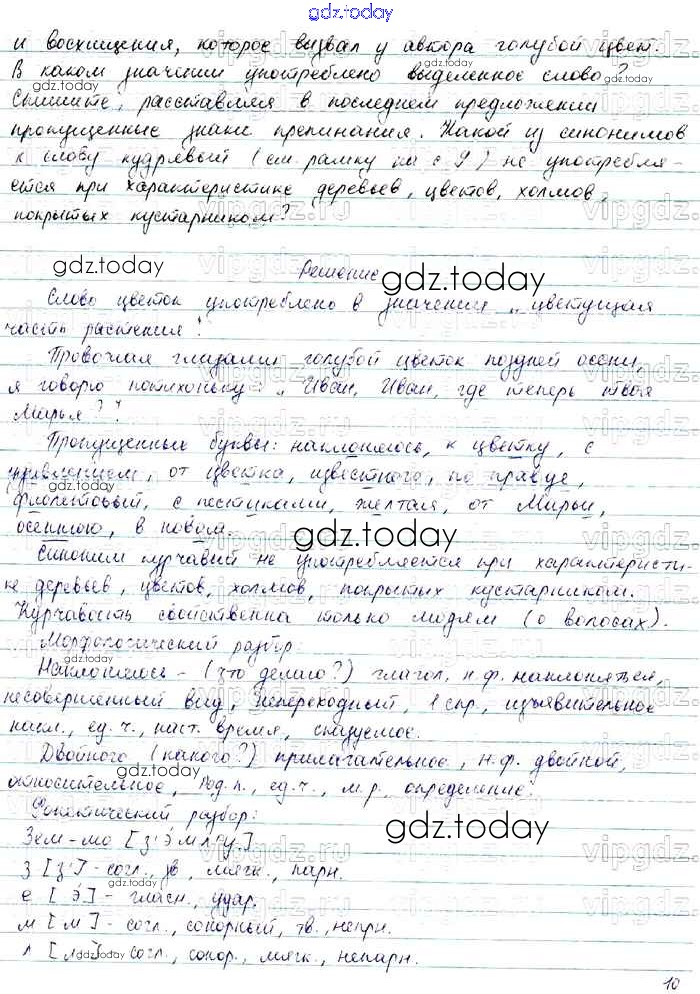 gdz.today
и восхищения, которое вызвал у автора голубой цвет.
В каком значении употреблено выделенное слово?
Спишите, расставляя в последнем предложении
пропущенные знаки препинания. Какой из синонимов
к слову кудрявый (см. рамку на с 9) не употребля-
ется при характеристике деревьев, цветов, холмов,
покрытых кустарником?
Решение
Слово цветок употреблено в значении „цветущая
часть растения".
Провожая глазами голубой цветок поздней осени,
я говорю потихоньку: „Иван, Иван, где теперь твоя
Марья?"
Пропущенные буквы: наклоняюсь, к цветку, с
от цветка, известного, по правде,
фиолетовый, с пестиками, жёлтая, от Марьи,
осеннюю, в новом.
Синоним курчавый не употребляется при характеристи-
ке деревьев, цветов, холмов, покрытых кустарником.
Курчавость свойственна только людям (о волосах).
Морфологический разбор:
Наклоняюсь - (что делаю?) глагол, н.ф. наклоняться,
несовершенный вид, непереходный, 1 спр, изъявительное
накл., ед. ч., наст. время, сказуемое.
Двойного (какого?) прилагательное, н.ф. двойной,
относительное, Род.п., ед.ч., м.р, определение.
Фонетический разбор:
Зем-лю
з [з'] - согл., зв, мягк., парн.
е [э́] - гласн., удар.
м [м] - согл., сонорный, тв., непрн.
л [л'] согл., сонор., мягк., непарн.
10